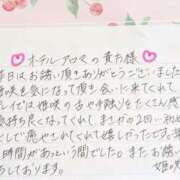 ホテルアロマの貴方様
昨日はお誘い頂きありがとうございました
姫咲を気になって指名して会いに来てくれて
プレイでは姫咲の舌や手触りをたくさん感
気持ち良くなってくれてまさかの2回!初
として癒やされてくれて嬉しかったです
時間があっという間でした。またお誘い
ております。
姫咲